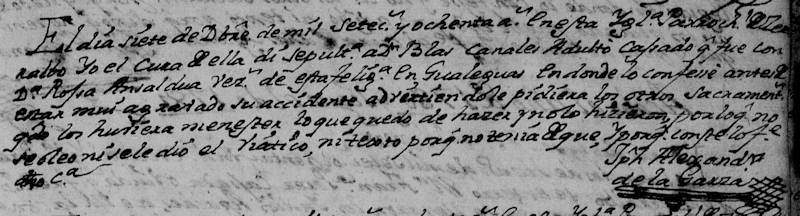 El dia siete de Dbre de mil setecs y ochenta as En esta Yglª Parrochl de
ralbo Yo el Cura de ella di sepulª a Dn Blas Canales Adulto Casado q fue con
Dª Rosa Ansaldua Vezs de esta feligª En Gualeguas en donde lo confese antes de
estar mui agravado su accidente advirtiendole pidiera los otros Sacramentos
qdo los huviera menester lo que quedo de hazer y no lo hizieron, por lo q no
se oleo ni se le dió el Viatico, ni texto porq no tenia de que, y porq conste lo fe
Jph Alexandro
dho Cª de la Garza